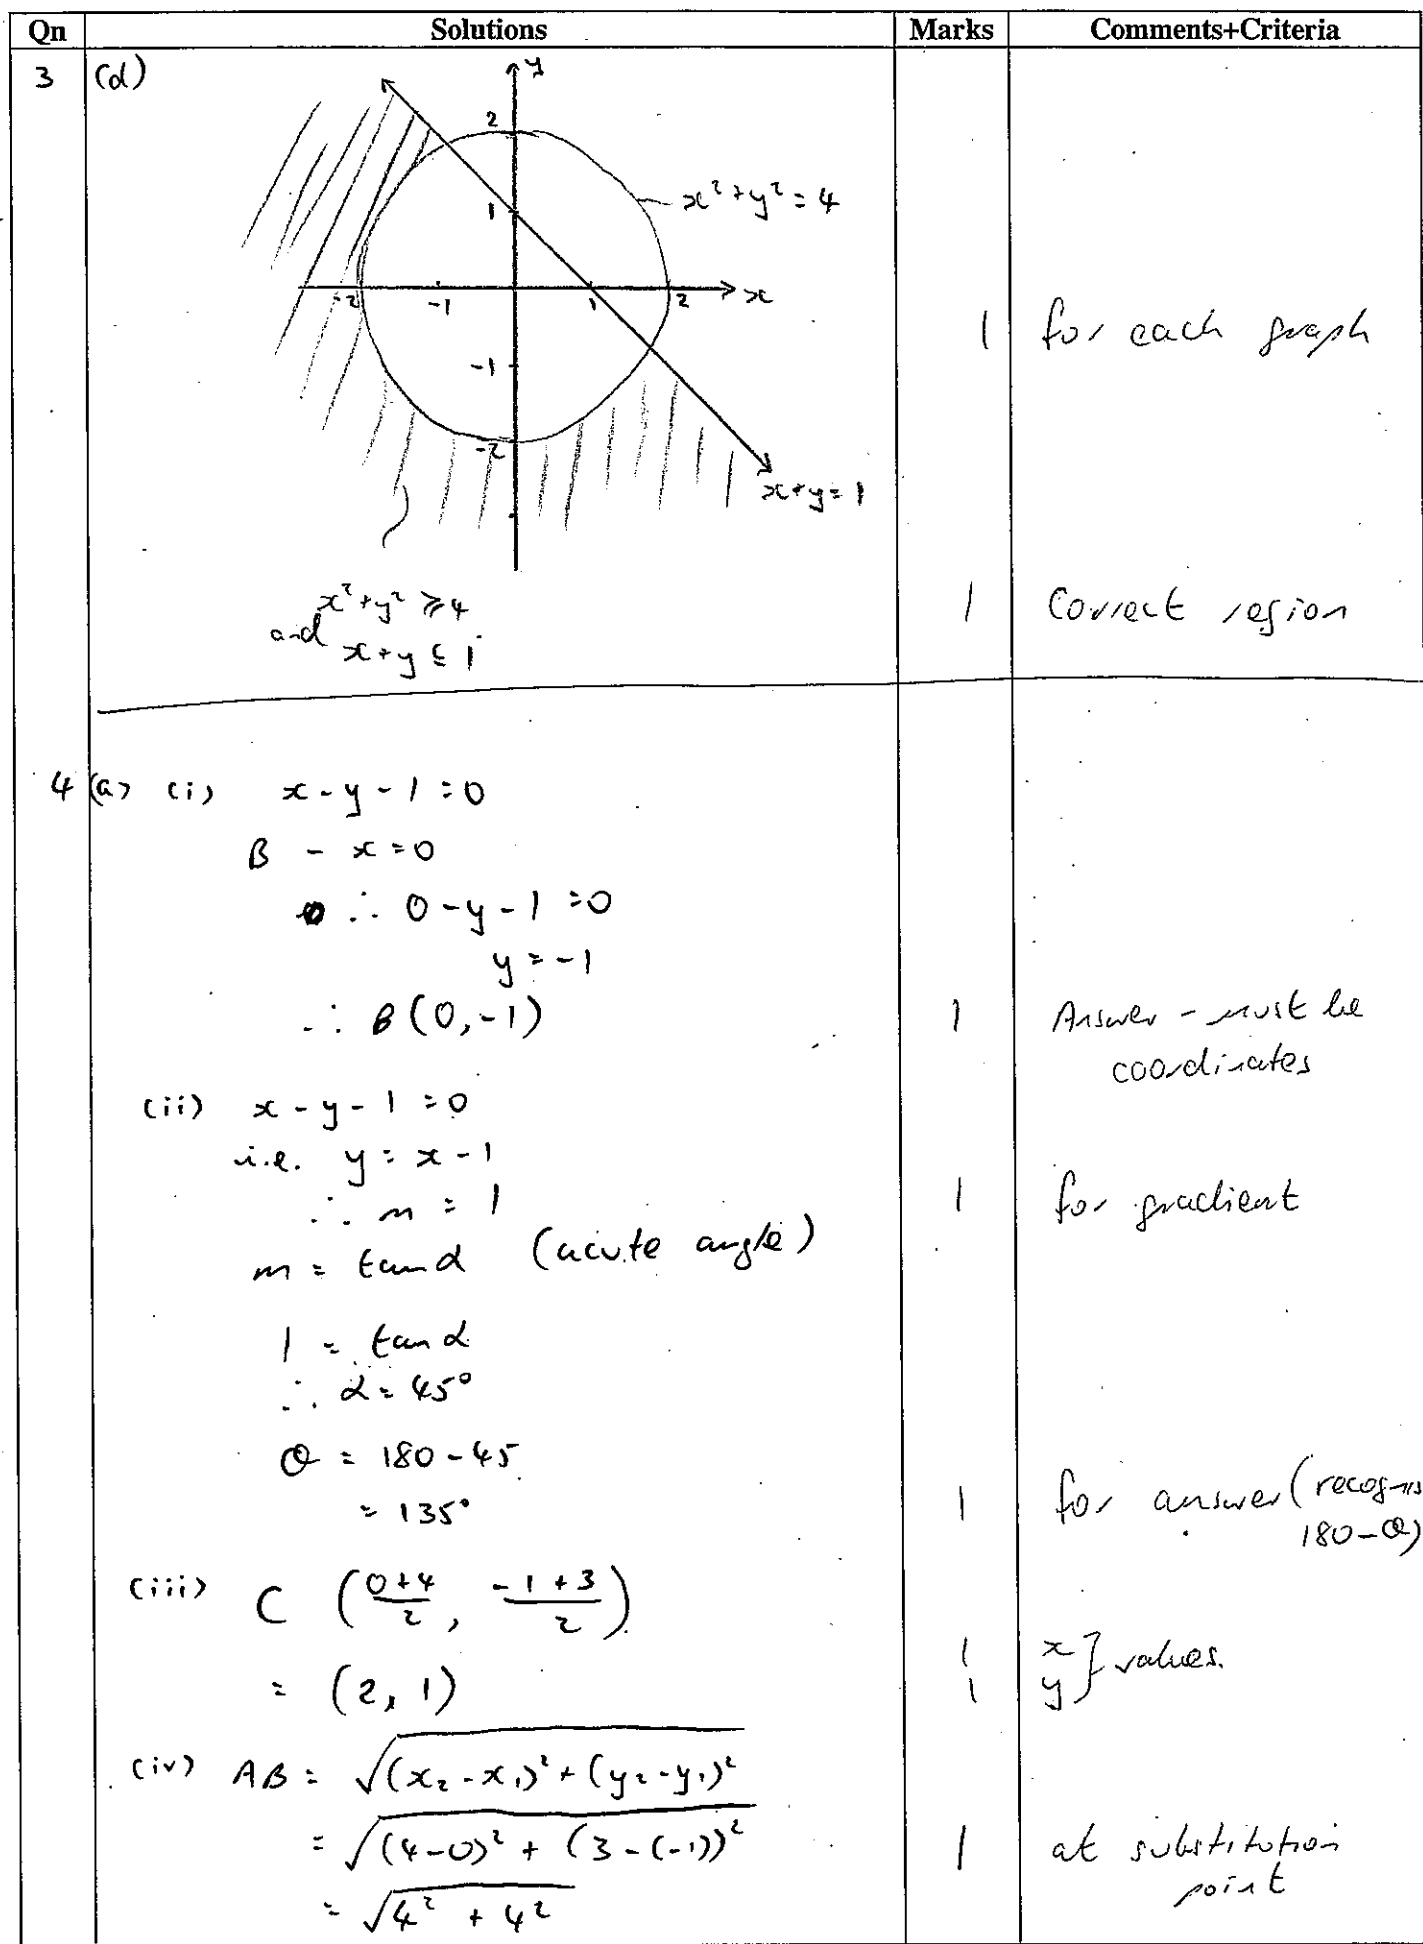 Qn Solutions Marks Comments+Criteria
3 (d)
y
2
1
x² + y² = 4
-2 -1 1 2 x
1 for each graph
-1
-2
x+y=1
x² + y² ⩾ 4
and x+y ≤ 1
1 Correct region
4 (a) (i) x - y - 1 = 0
B - x = 0
∴ 0 - y - 1 = 0
y = -1
∴ B(0,-1) 1 Answer - must be
coordinates
(ii) x - y - 1 = 0
i.e. y = x - 1
∴ m = 1 1 for gradient
m = tan α (acute angle)
1 = tan α
∴ α = 45°
θ = 180 - 45
= 135° 1 for answer (recognis
180 - θ)
(iii) C (0+4/2, -1+3/2)
= (2, 1) 1 x } values.
1 y
(iv) AB = √(x₂ - x₁)² + (y₂ - y₁)²
= √(4-0)² + (3-(-1))² 1 at substitution
point
= √4² + 4²